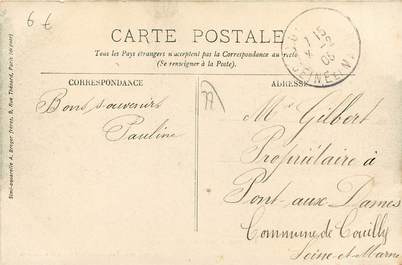 6 €
CARTE POSTALE
Tous les Pays étrangers n'acceptent pas la Correspondance au recto
(Se renseigner à la Poste).
CORRESPONDANCE
ADRESSE
Bons souvenirs
Pauline
77
Mr Gilbert
Propriétaire à
Pont-aux Dames
Commune de Couilly
Seine-et-Marne
Semi-aquarelle A. Breger frères, 9, Rue Thénard, Paris